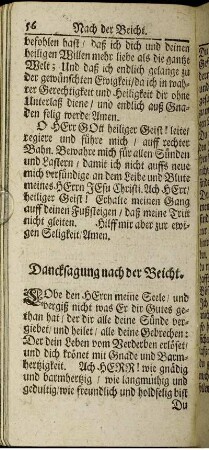 56 Nach der Beicht.
befohlen hast / daß ich dich und deinen
heiligen Willen mehr liebe als die gantze
Welt: Und daß ich endlich gelange zu
der gewünschten Ewigkeit / da ich in wah-
rer Gerechtigkeit und Heiligkeit dir ohne
Unterlaß diene / und endlich auß Gna-
den selig werde Amen.
O HErr GOtt heiliger Geist! leite /
regiere und führe mich / auff rechter
Bahn. Bewahre mich für allen Sünden
und Lastern / damit ich nicht auffs neue
mich versündige an dem Leibe und Blute
meines HErrn JEsu Christi. Ach HErr /
heiliger Geist! Erhalte meinen Gang
auff deinen Fußsteigen / daß meine Trit
nicht gleiten. Hilff mir aber zur ewi-
gen Seligkeit / Amen.
Dancksagung nach der Beicht.
LObe den HErrn meine Seele / und
vergiß nicht was Er dir Gutes ge-
than hat / der dir alle deine Sünde ver-
giebet / und heilet / alle deine Gebrechen:
Der dein Leben vom Verderben erlöset /
und dich krönet mit Gnade und Barm-
hertzigkeit. Ach HERR! wie gnädig
und barmhertzig / wie langmüthig und
gedultig / wie freundlich und holdselig bist
Du